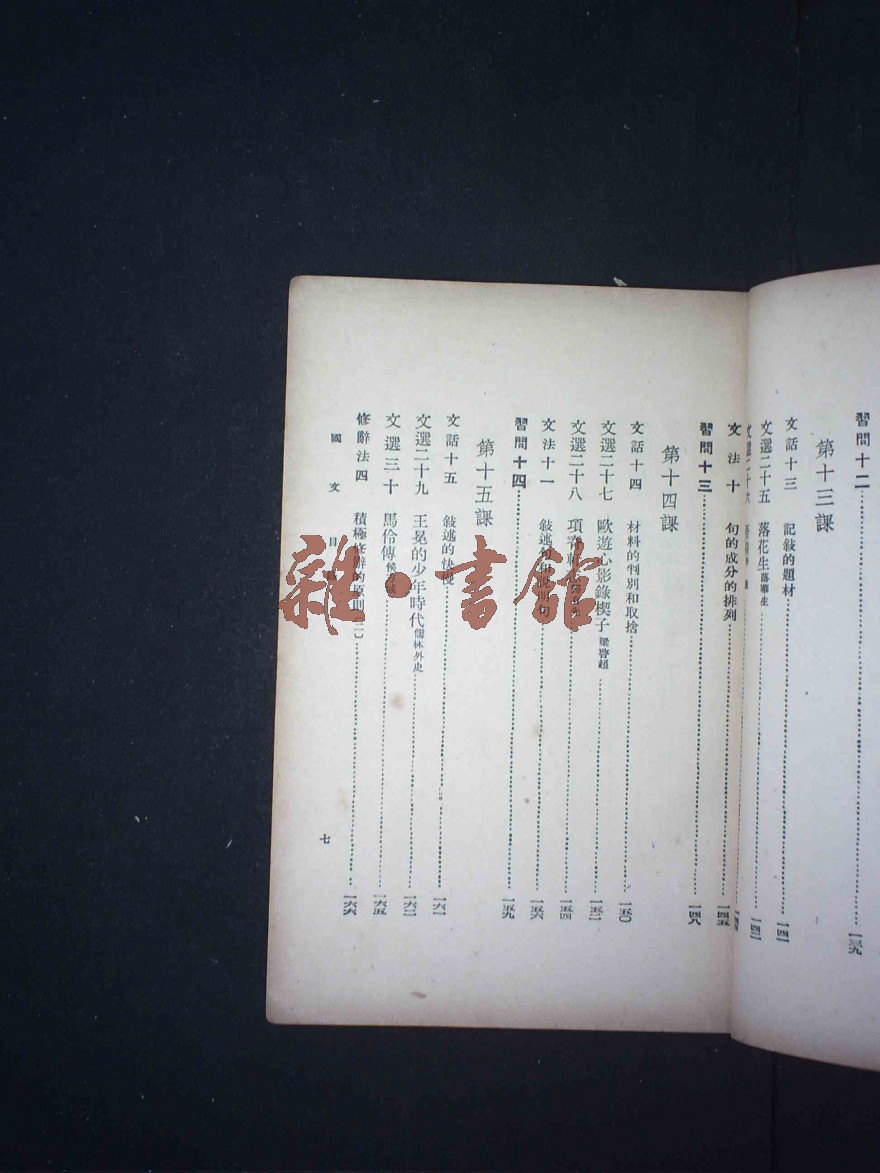 習問十二 一三九
第十三課
文話十三 記敍的題材 一四一
文選二十五 落花生 落華生 一四二
文選二十六
文法十 句的成分的排列 一四五
習問十三 一四八
第十四課
文話十四 材料的判別和取捨 一五〇
文選二十七 歐遊心影錄楔子 梁啓超 一五二
文選二十八 一五四
文法十一 敍述句和說明句 一五六
習問十四 一五九
第十五課
文話十五 敍述的快慢 一六一
文選二十九 王冕的少年時代 儒林外史 一六二
文選三十 馬伶傳 一六五
修辭法四 積極修辭的原則(二) 一六六
國文 目
七
雜·書館